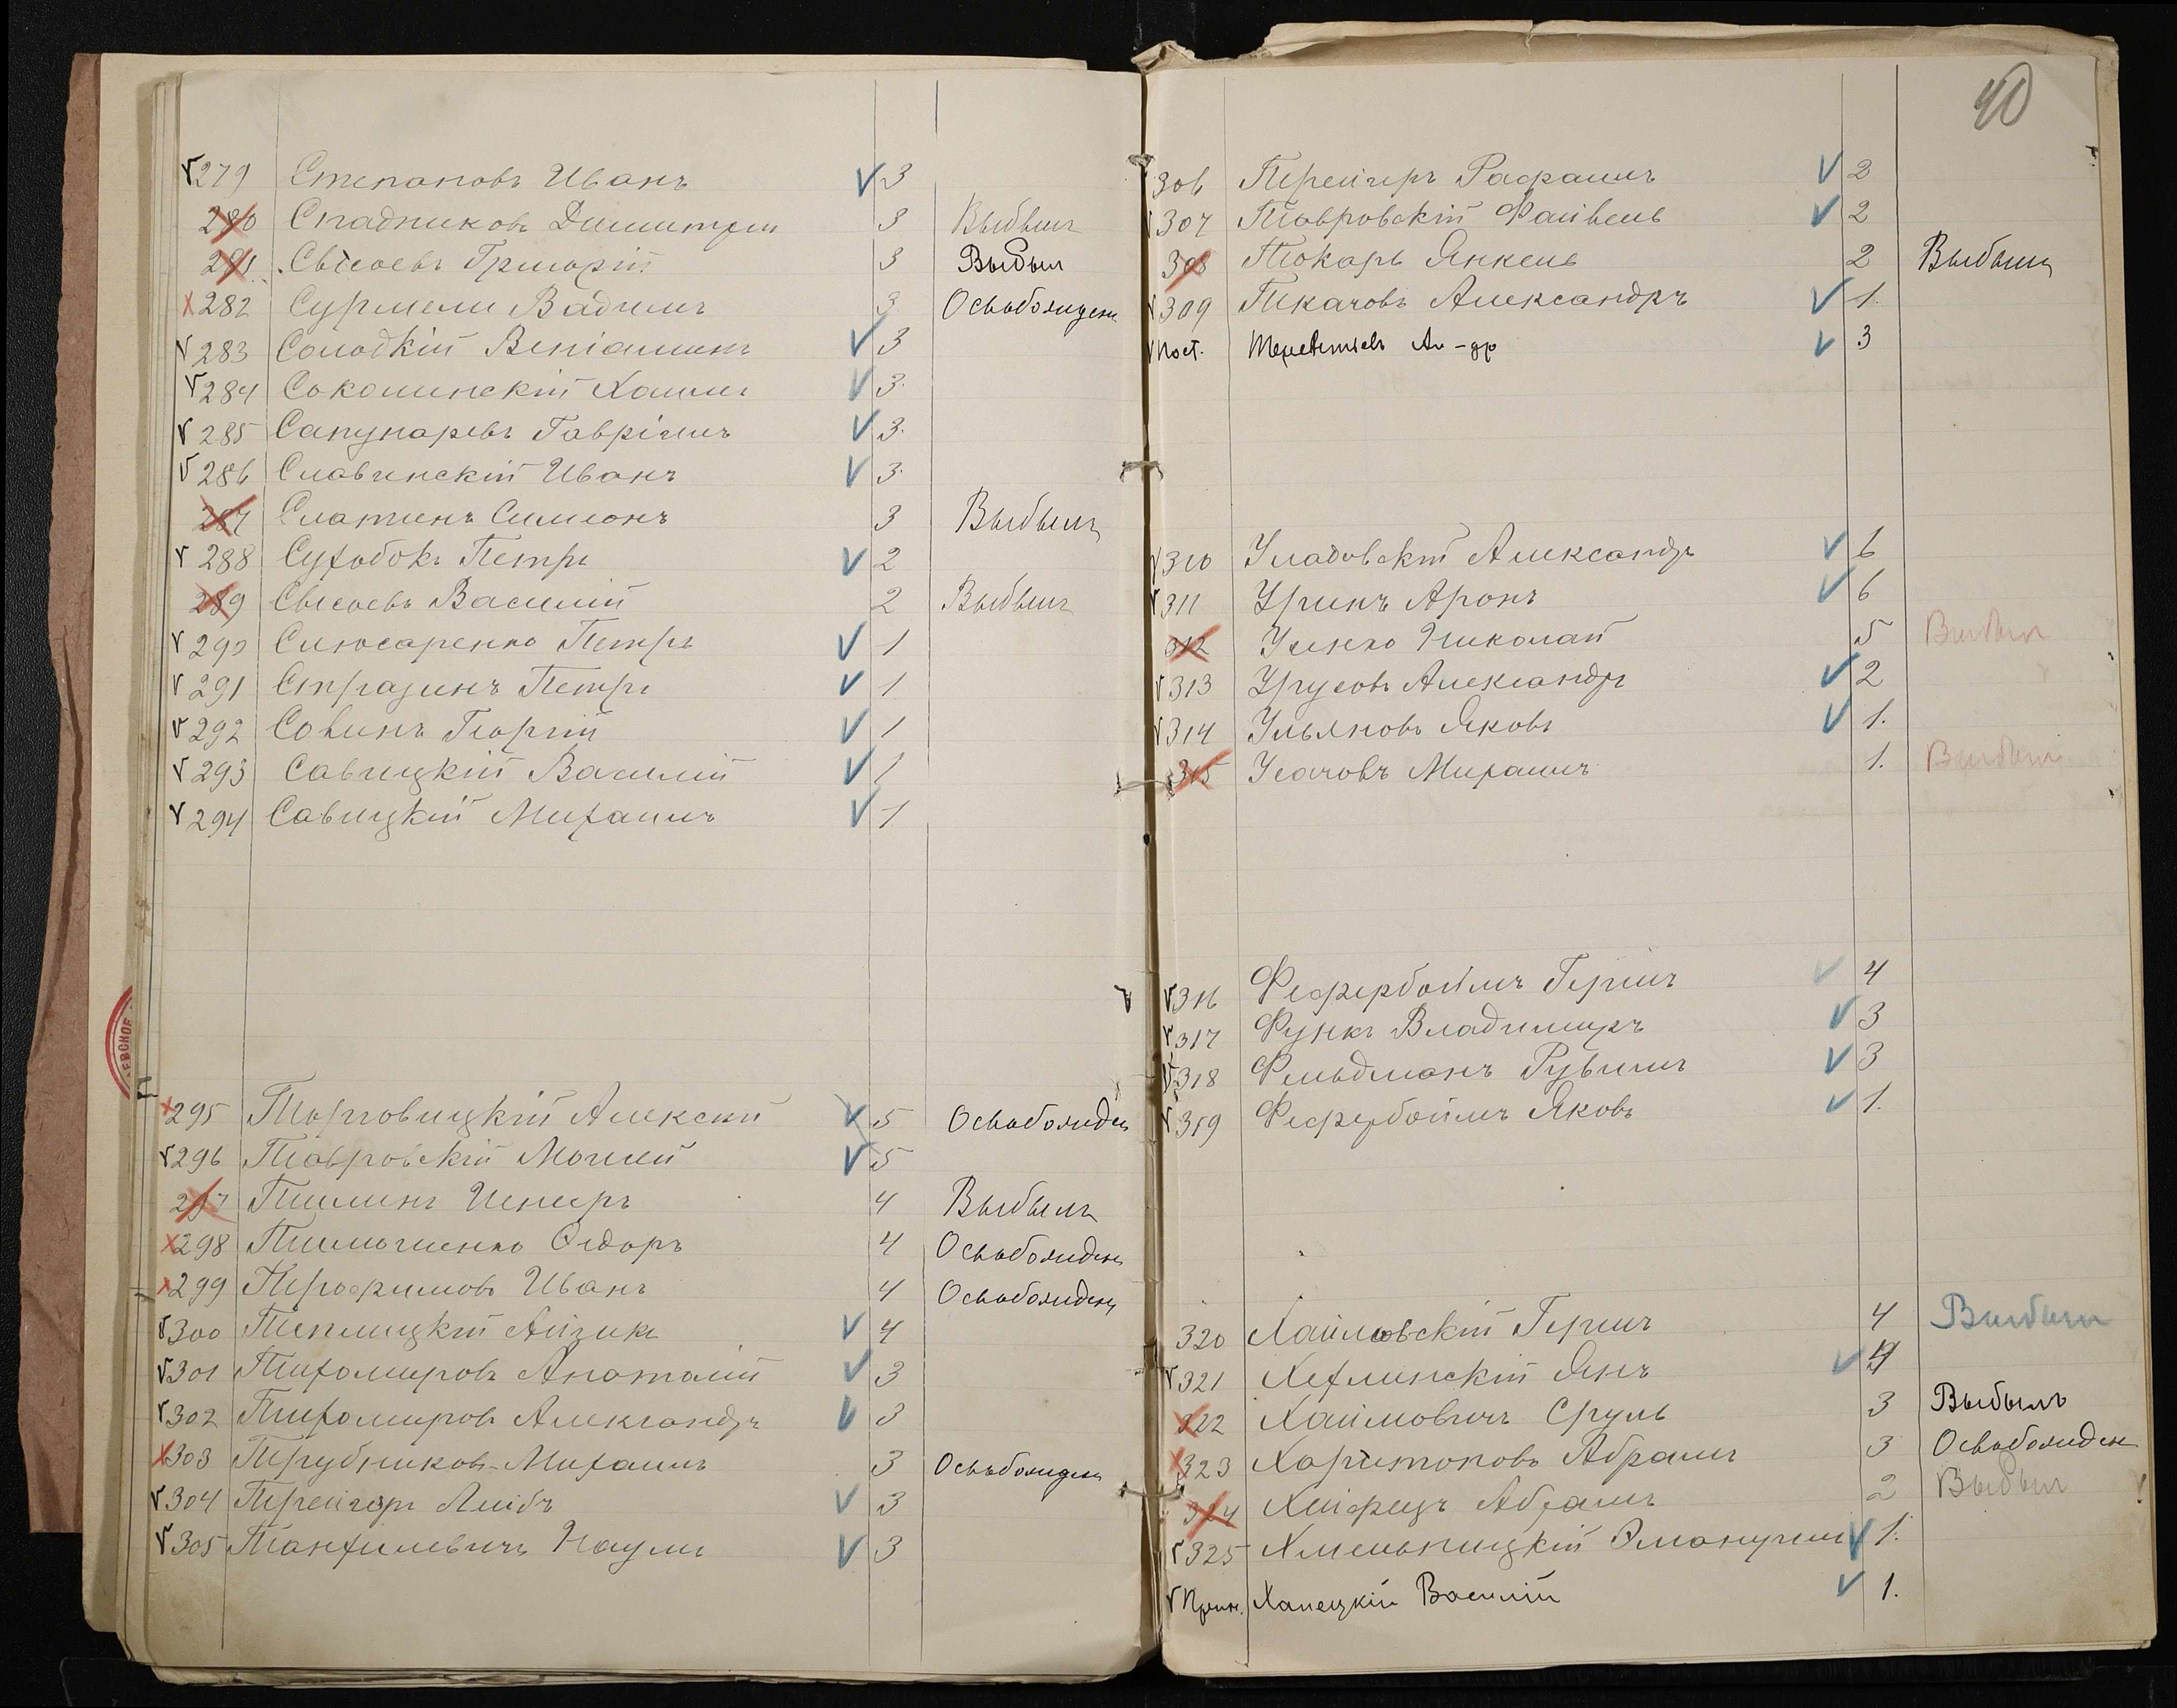 279 Степановъ Иванъ 3
280 Спадниковъ Димитрій 3 Выбылъ
281 Свѣсоевъ Григорій 3 Выбыл
282 Сурмели Вадимъ 3 Освобожденъ
283 Солодкій Веніаминъ 3
284 Соколинскій Хаимъ 3.
285 Сапунаревъ Гавріилъ 3.
286 Славинскій Иванъ 3.
287 Слатинъ Симеонъ 3 Выбылъ
288 Сухобокъ Петръ 2
289 Василій 2 Выбылъ
290 Слюсаренко Петръ 1
291 Стразинъ Петръ 1
292 Совинъ Георгій 1
293 Савицкій Василій 1
294 Савицкій Михаилъ 1
295 Торговицкій Алексѣй 5 Освобожден
296 Тавровскій Моисей 5
297 Тилинъ 4 Выбылъ
298 Тимошенко Ѳедоръ 4 Освобожденъ
299 Трофимовъ Иванъ 4 Освобожденъ
300 Теплицкій Айзикъ 4
301 Тихомировъ Анатолій 3
302 Тихомировъ Александръ 3
303 Трубниковъ-Михаилъ 3 Освобожденъ
304 Трейгеръ Лейбъ 3
305 Танхилевичъ Наумъ 3
40
306 Трейгеръ Рафаилъ 2
307 Тавровскій Файвель 2
308 Токарь Янкель 2 Выбылъ
309 Ткачовъ Александръ 1.
пост. Терентьевъ Ал-др 3
310 Уладовскій Александръ 6
311 Уринъ Аронъ 6
312 Усенко Николай 5 Выбыл
313 Урусовъ Александръ 2
314 Ульяновъ Яковъ 1.
315 Усачовъ Михаилъ 1. Выбыл
316 Фефербоймъ Гершъ 4
317 Функъ Владимиръ 3
318 Фельдманъ Рувимъ 3
319 Фефербоймъ Яковъ 1.
320 Хаймовскій Гершъ 4 Выбыл
321 Хехлинскій Янъ 4
322 Хаймовичъ Сруль 3 Выбылъ
323 Харитоновъ Абрамъ 3 Освобожден
324 Хейфецъ Абрамъ 2 Выбыл
325 Хмельницкій Эмануилъ 1.
Прин. Ханецкій Василій 1.